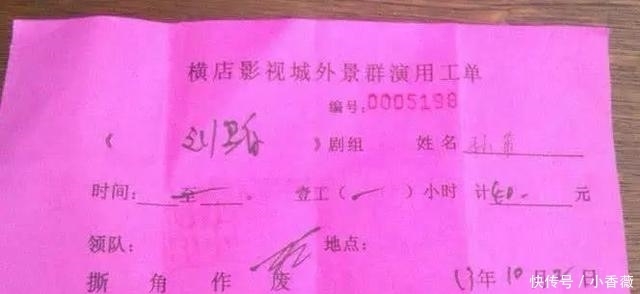 横店影视城外景群演用工单
编号:0005198
《 》剧组 姓名
时间: 至 壹工( 一 )小时 计 40. 元
领队: 地点:
撕角作废 13年10月 日
快传号 / 小香薇